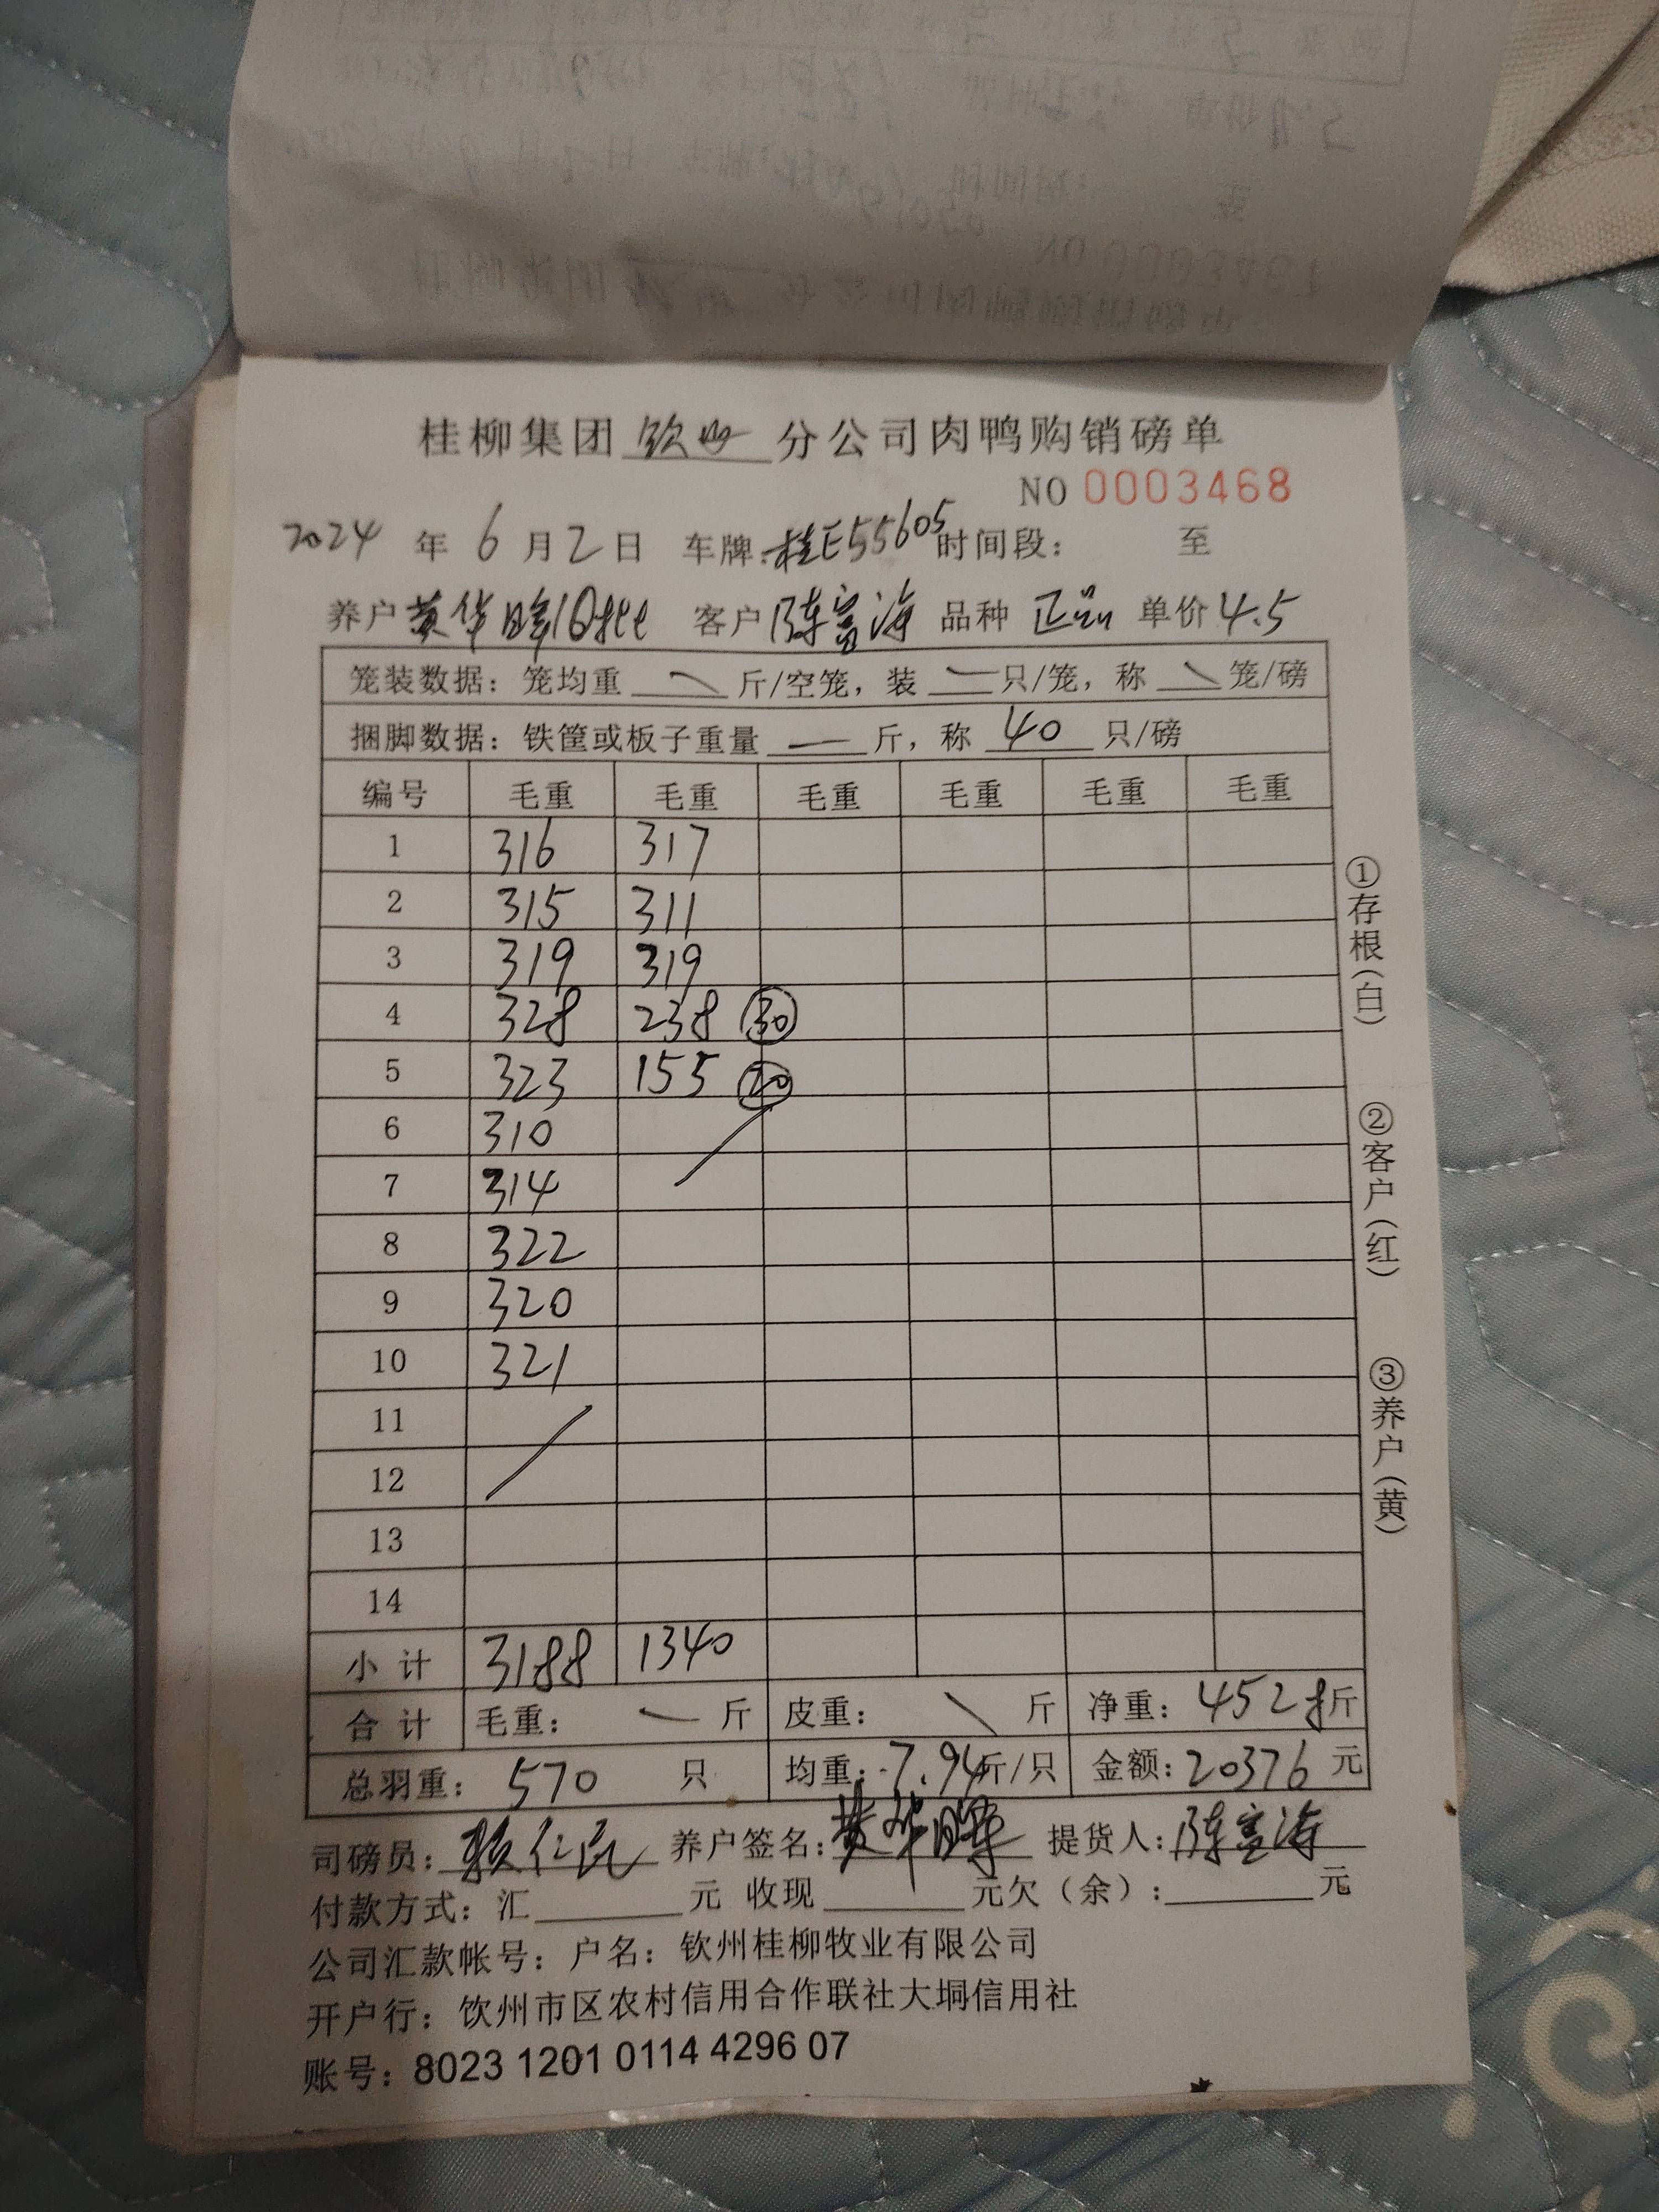 桂柳集团 钦州 分公司肉鸭购销磅单
NO 0003468
2024 年 6 月 2 日 车牌: 桂E55605 时间段: 至
养户 黄华晖 客户 陈富海 品种 正品 单价 4.5
笼装数据: 笼均重 — 斤/空笼, 装 — 只/笼, 称 — 笼/磅
捆脚数据: 铁筐或板子重量 — 斤, 称 40 只/磅
编号 毛重 毛重 毛重 毛重 毛重 毛重
1 316 317
2 315 311
3 319 319
4 328 238 30
5 323 155 20
6 310
7 314
8 322
9 320
10 321
11
12
13
14
小计 3188 1340
合计 毛重: — 斤 皮重: — 斤 净重: 4528 斤
总羽重: 570 只 均重: 7.94 斤/只 金额: 20376 元
司磅员: 养户签名: 黄华晖 提货人: 陈富海
付款方式: 汇 元 收现 元欠(余): 元
公司汇款帐号: 户名: 钦州桂柳牧业有限公司
开户行: 钦州市区农村信用合作联社大垌信用社
账号: 8023 1201 0114 4296 07
①存根(白)
②客户(红)
③养户(黄)